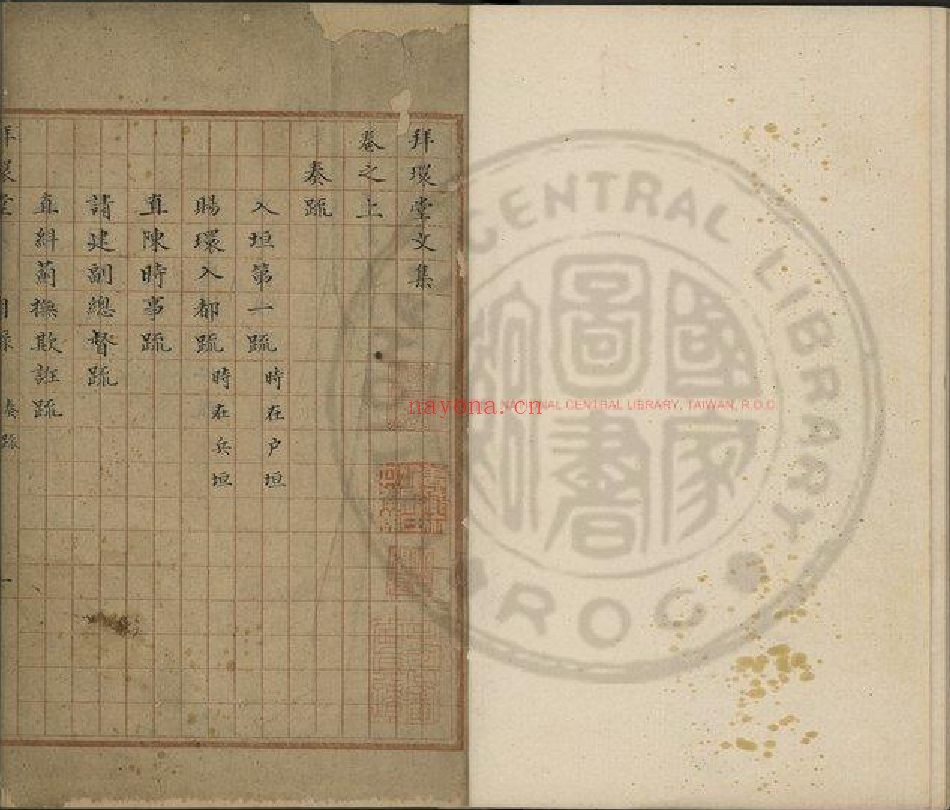 拜環堂文集
卷之上
奏疏
入垣第一疏 時在戶垣
賜環入都疏 時在兵垣
直陳時事疏
請建副總督疏
直糾薊撫欺誑疏
拜環堂 目録 奏疏 一
CENTRAL LIBRARY
ROC
國家圖書館
NATIONAL CENTRAL LIBRARY, TAIWAN, R.O.C
nayona.cn